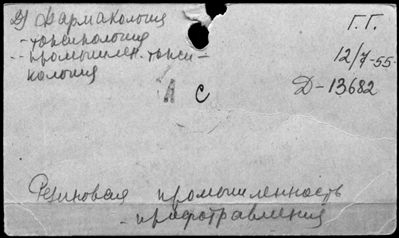 Д) Фармакология
- токсикология
- промышлен. токси-
кология
Г. Г.
12/7-55.
Д-13682
А с
Резиновая промышленность
- профотравления